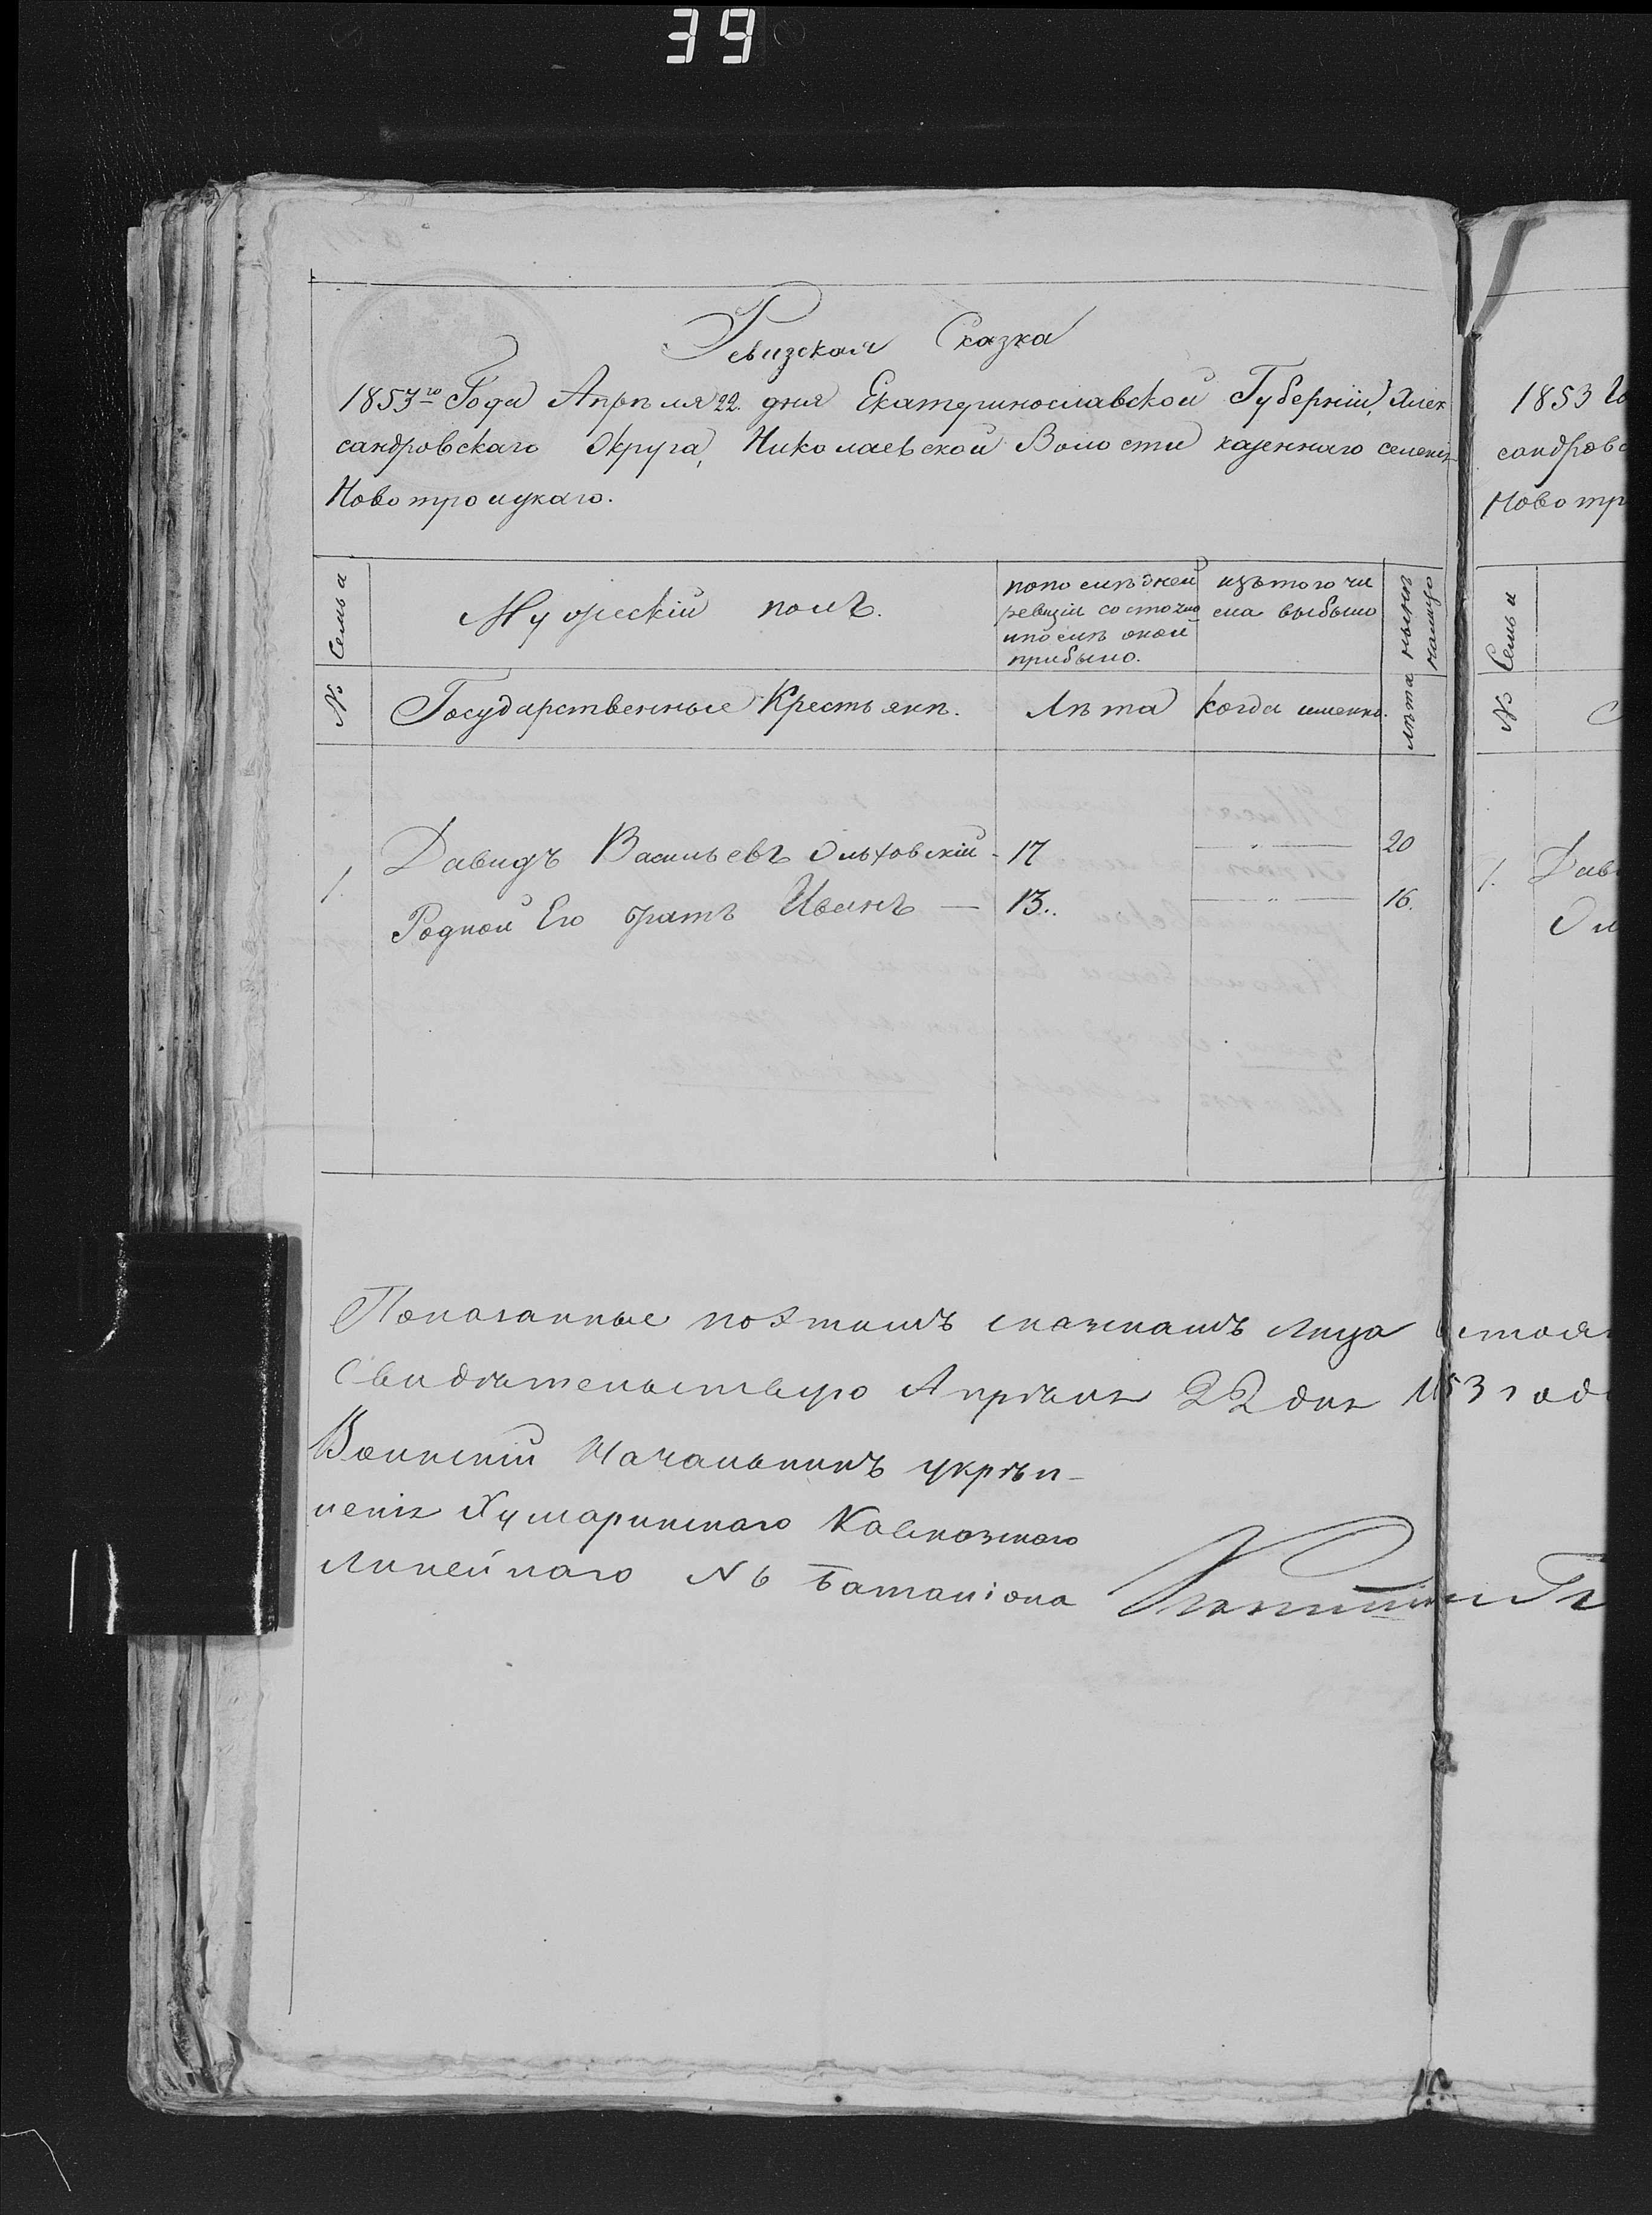 39
Ревизская Сказка
1853го Года Апрѣля 22. дня Екатеринославской Губерніи, Алек
сандровскаго Округа, Николаевской Волости казеннаго селенія
Новотроицкаго.
Семьи
Мужескій полъ.
попослѣдней
ревизіи состояло
ипослѣ оной
прибыло.
изътого чи
сла выбыло
лѣта нынѣ
налицо
№
Государственные Крестьяне.
Лѣта
когда именно.
1.
Давидъ Васильевъ Ольховскій - 17 — „ — 20
Родной Его братъ Иванъ — 13.. — „ — 16.
Показанные поэтимъ сказкамъ лица
Свидѣтельствую Апрѣля 22 дня 1853 года
Воинскій Начальникъ укрѣп-
ленія Хумаринскаго Кавказскаго
Линейнаго № 6 Баталіона
1853 Го
сандровс
Новотр
Семьи
№
1. Дави
Оль